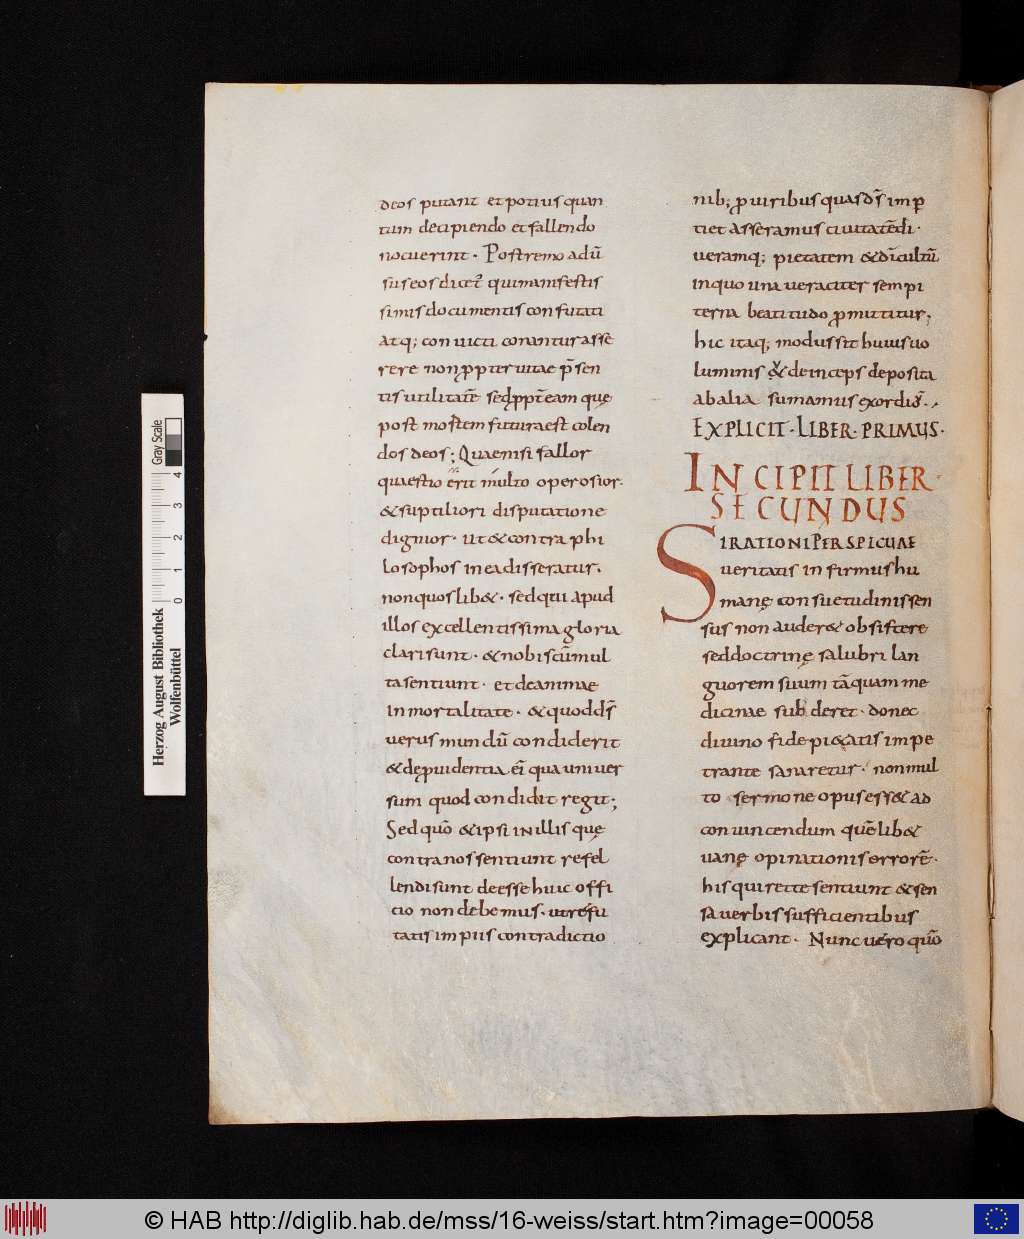 deos putant et potius quan
tum decipiendo et fallendo
nocuerint · Postremo adū
sus eos dicet᷑ qui manifestis
simis documentis confutati
atq; conuicti conantur asse
rere non ꝓpter uitae p̄sen
tis utilitatē sed ꝓpt̄ eam quę
post mortem futura est colen
dos deos ; Quae nisi fallor
quaestio erit multo operosior·
& suptiliori disputatione
dignior · ut & contra phi
losophos in ea disseratur ·
non quoslib& · sed qui apud
illos excellentissima gloria
clari sunt · & nobiscū mul
ta sentiunt · et de animae
inmortalitate · & quod d̄s
uerus mundū condiderit
& de ꝓuidentia ei᷒ qua uniuer
sum quod condidit regit ;
Sed quō & ipsi in illis quę
contra nos sentiunt refel
lendi sunt deesse huic offi
cio non debemus · ut refu
tatis impiis contradictio
nib; ꝓ uiribus quas d̄s imꝑ
tiet asseramus ciuitatē dī ·
ueramq; pietatem & dī cultū
in quo uno ueraciter sempi
terna beatitudo ꝓmittitur ;
hic itaq; modus sit huius uo
luminis ut deinceps deposita
ab alia sumamus exordio ·
EXPLICIT · LIBER · PRIMUS ·
INCIPIT LIBER
SECUNDUS
SI RATIONI PERSPICUAE
ueritatis infirmus hu
manę consuetudinis sen
sus non auder& obsistere
sed doctrinę salubri lan
guorem suum tāquam me
dicinae subderet · donec
diuino fide pi&atis impe
trante sanaretur · non mul
to sermone opus ess& ad
conuincendum quēlib&
uanę opinationis errorē ·
his qui recte sentiunt & sen
sa uerbis sufficientibus
explicant · Nunc uero quō
Herzog August Bibliothek
Wolfenbüttel
Gray Scale
0 1 2 3 4
© HAB http://diglib.hab.de/mss/16-weiss/start.htm?image=00058